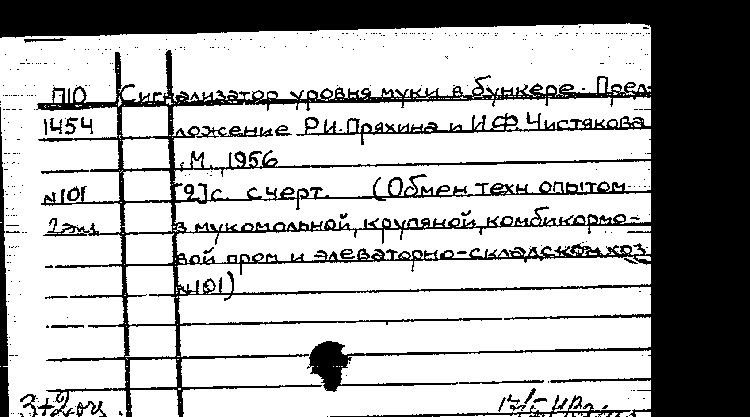 П10 Сигнализатор уровня муки в бункере. Пред-
1454 ложение Р.И.Пряхина и И.Ф.Чистякова
. М., 1956
N101 [2]с. с черт. (Обмен техн опытом
2 экз в мукомольной, крупяной, комбикормо-
вой пром и элеваторно-складском хоз
N101)
3+2